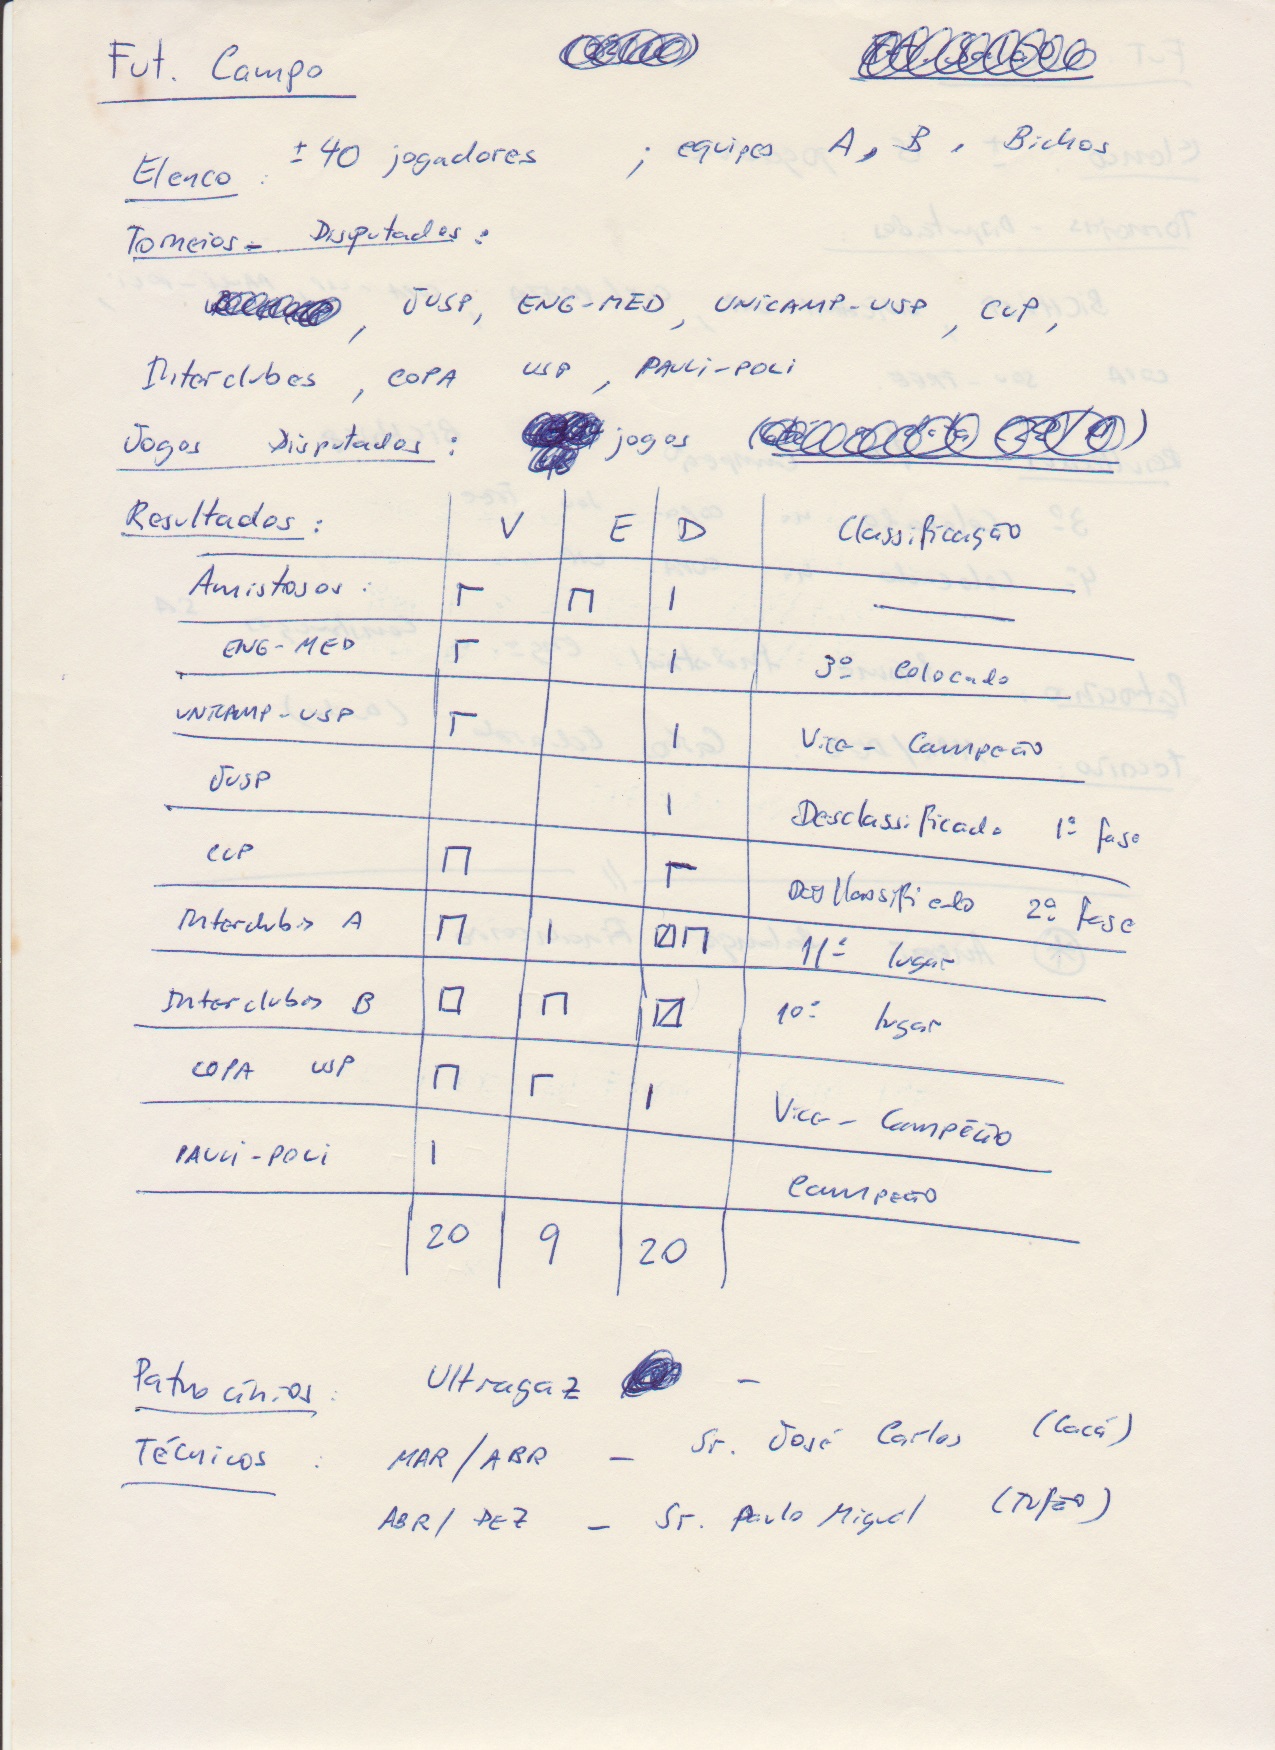 Fut. Campo
Elenco : ± 40 jogadores ; equipes A, B, Bichos
Torneios - Disputados :
, JUSP, ENG-MED, UNICAMP-USP, CUP,
Interclubes, COPA USP, PAULI-POLI
Jogos Disputados : jogos
Resultados : V E D Classificação
Amistosos :
ENG-MED 3º Colocado
UNICAMP-USP Vice-Campeão
JUSP Desclassificado 1ª fase
CUP Desclassificado 2ª fase
Interclubes A 11º lugar
Interclubes B 10º lugar
COPA USP Vice-Campeão
PAULI-POLI Campeão
20 9 20
Patrocínios : Ultragaz -
Técnicos : MAR/ABR - Sr. José Carlos (Cacá)
ABR/DEZ - Sr. Paulo Miguel (Tufão)